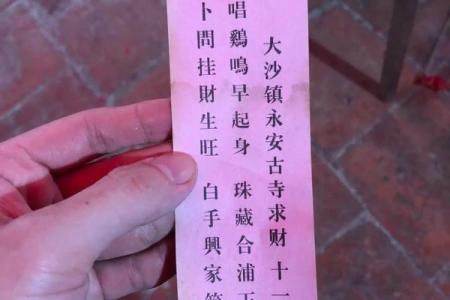 大沙镇永安古寺求财 十一
唱鷄鳴早起身 珠藏合浦
卜問挂財生旺 白手興家